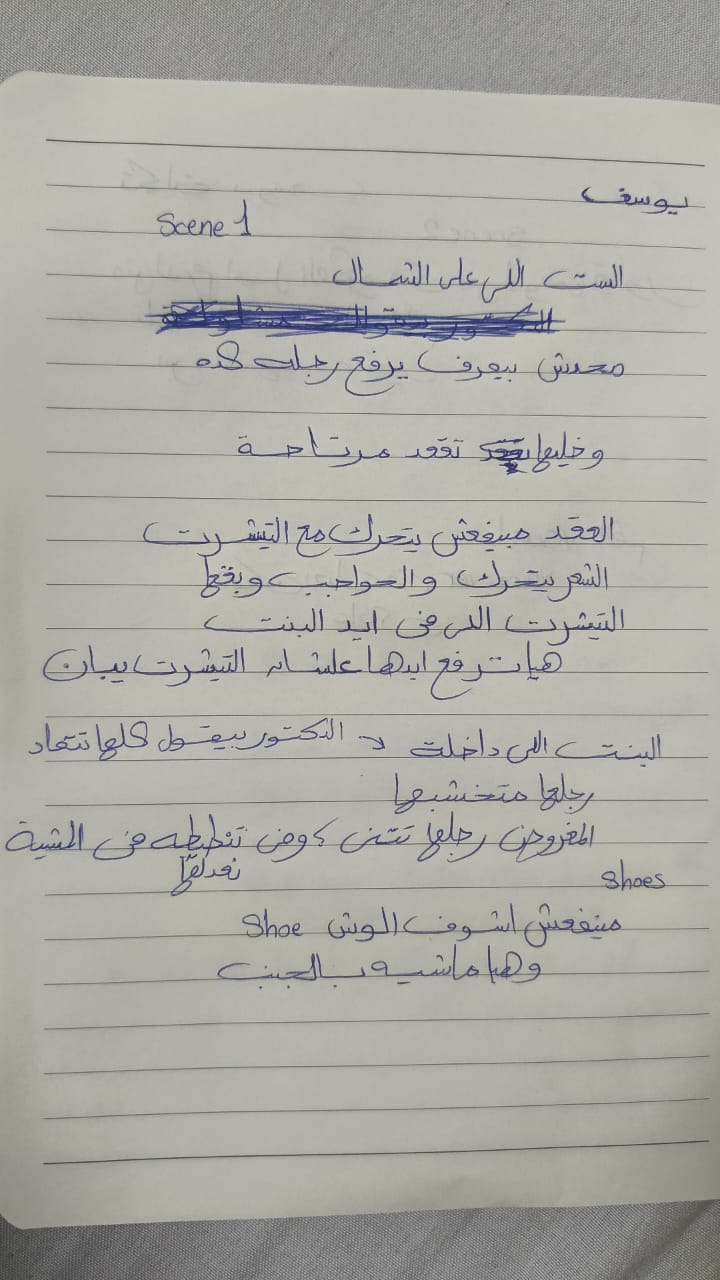 يوسف
Scene 1
الست اللي على الشمال
محدش بيعرف يرفع رجله كده
وخليها تقعد مرتاحة
العقد مبيفعش يتحرك مع التيشرت
الشعر يتحرك والحواجب وبقها
التيشرت اللى فى ايد البنت
هيا ترفع ايدها علشان التيشرت يبان
البنت اللى داخلة > الدكتور بيقول كلها تتعاد
رجلها متخشبها
المفروض رجلها تتنى فى المشية
نعدلها
shoes
مينفعش اشوف الوش shoe
وهيا ماشيه بالجنب